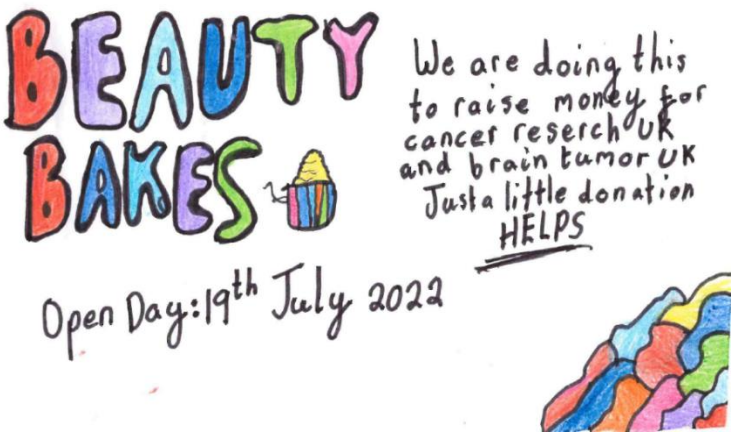 BEAUTY
BAKES
We are doing this
to raise money for
cancer reserch UK
and brain tumor UK
Just a little donation
HELPS
Open Day: 19th July 2022